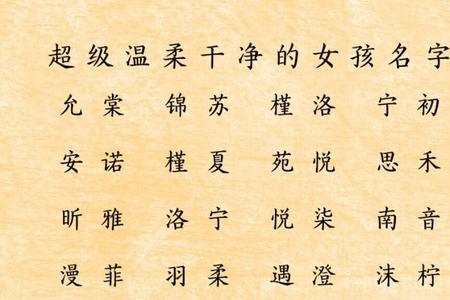 超级温柔干净的女孩名字
允棠 锦苏 槿洛 宁初
安诺 槿夏 苑悦 思禾
昕雅 洛宁 悦柒 南音
漫菲 羽柔 遇澄 沫柠